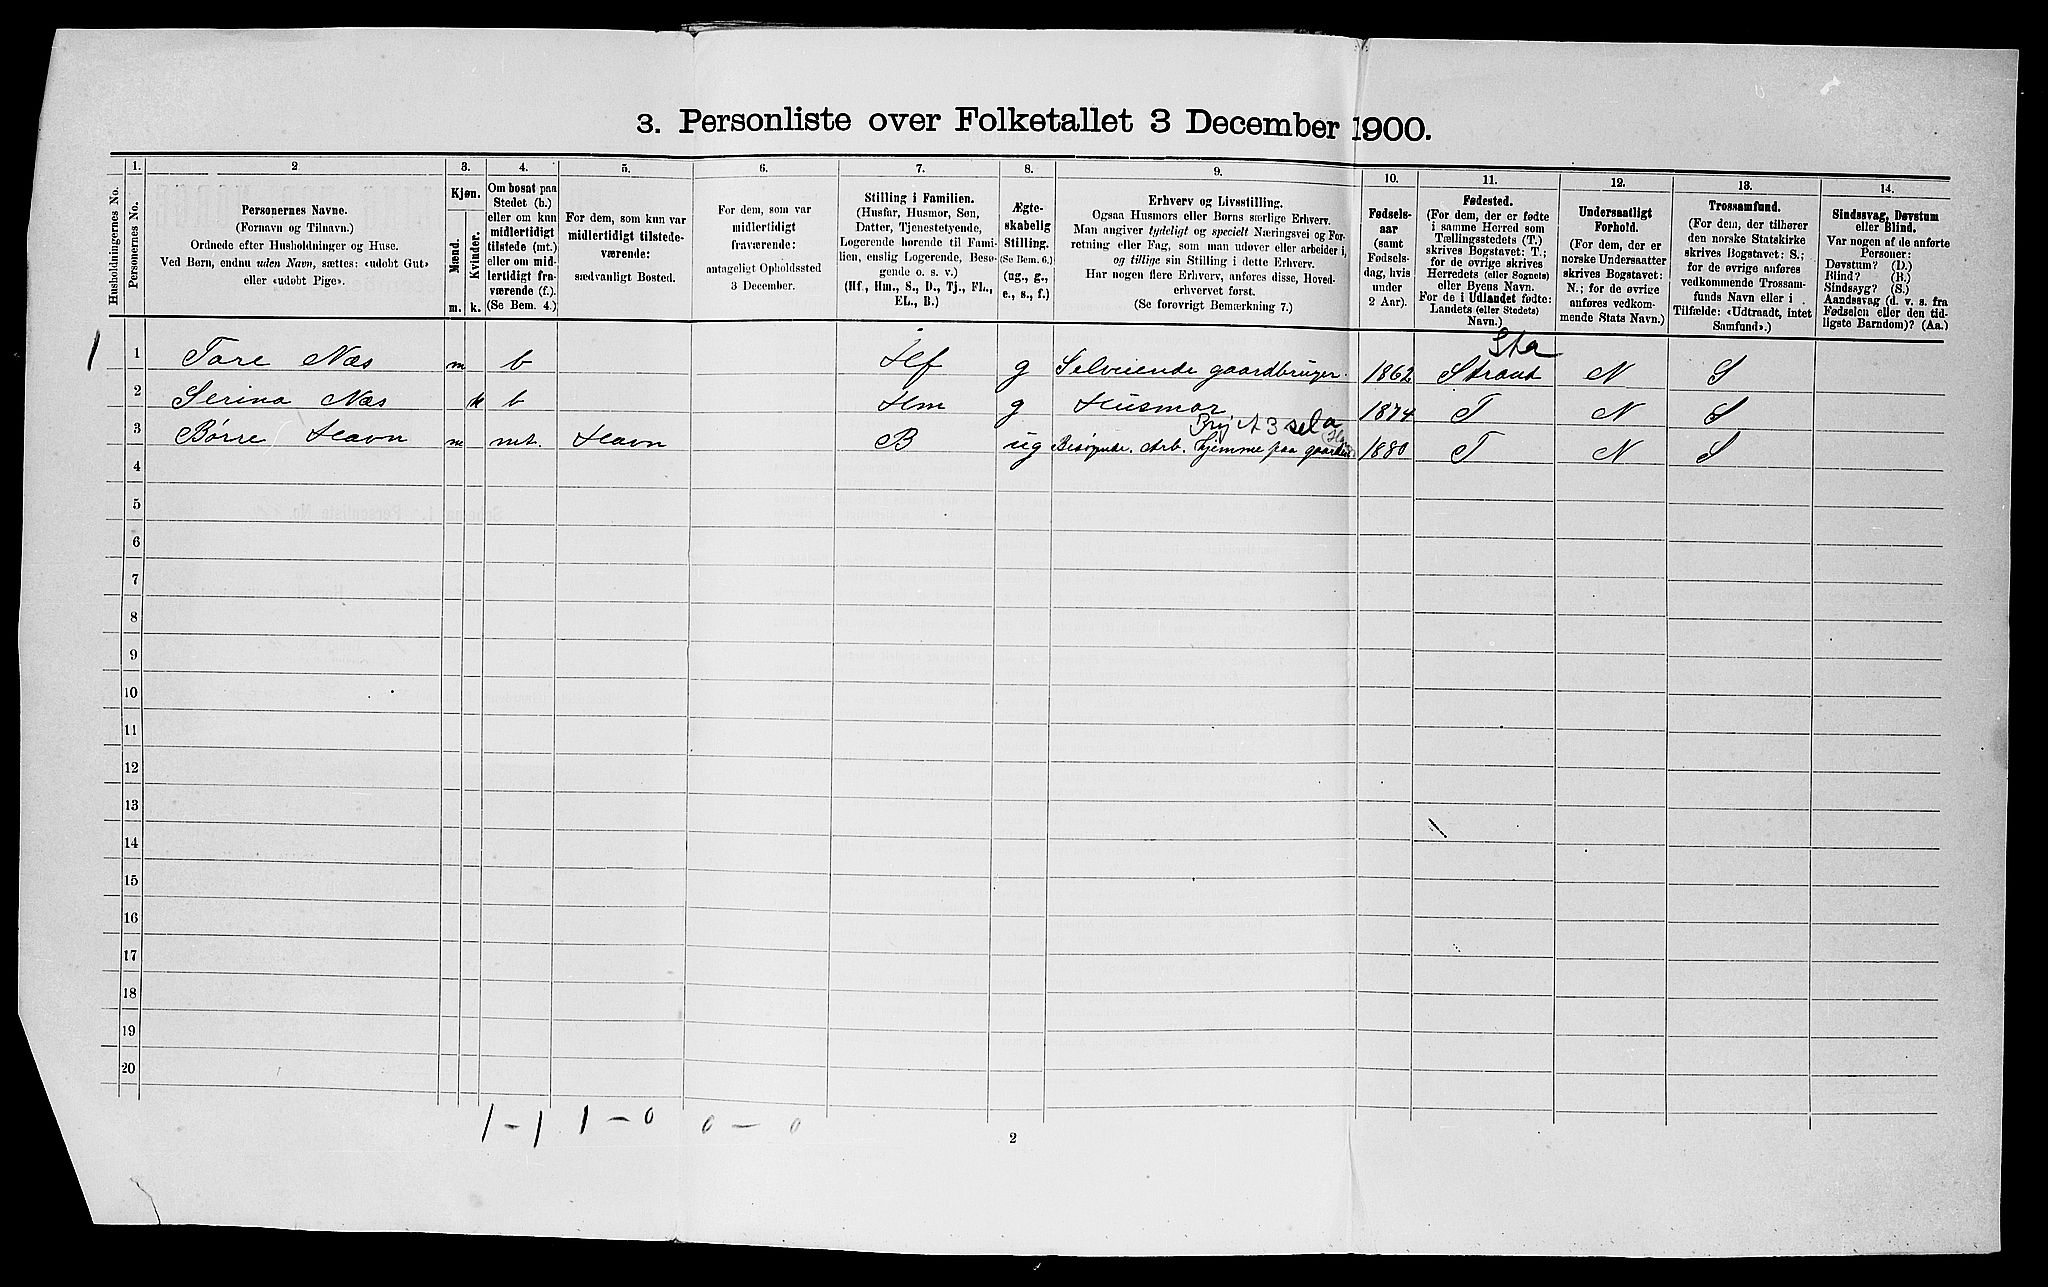 3. Personliste over Folketallet 3 December 1900.
Husholdningernes No.
1.
Personernes No.
2
Personernes Navne.
(Fornavn og Tilnavn.)
Ordnede efter Husholdninger og Huse.
Ved Børn, endnu uden Navn, sættes: «udøbt Gut»
eller «udøbt Pige».
3.
Kjøn.
Mænd.
Kvinder.
m. k.
4.
Om bosat paa
Stedet (b.)
eller om kun
midlertidigt
tilstede (mt.)
eller om mid-
lertidigt fra-
værende (f.).
(Se Bem. 4.)
5.
For dem, som kun var
midlertidigt tilstede-
værende:
sædvanligt Bosted.
6.
For dem, som var
midlertidigt
fraværende:
antageligt Opholdssted
3 December.
7.
Stilling i Familien.
(Husfar, Husmor, Søn,
Datter, Tjenestetyende,
Logerende hørende til Fami-
lien, enslig Logerende, Besø-
gende o. s. v.)
(Hf., Hm., S., D., Tj., FL.,
EL., B.)
8.
Ægte-
skabelig
Stilling.
(Se Bem. 6.)
(ug., g.,
e., s., f.)
9.
Erhverv og Livsstilling.
Ogsaa Husmors eller Børns særlige Erhverv.
Man angiver tydeligt og specielt Næringsvei og For-
retning eller Fag, som man udøver eller arbeider i,
og tillige sin Stilling i dette Erhverv.
Har nogen flere Erhverv, anføres disse, Hoved-
erhvervet først.
(Se forøvrigt Bemærkning 7.)
10.
Fødsels-
aar
(samt
Fødsels-
dag, hvis
under
2 Aar).
11.
Fødested.
(For dem, der er fødte
i samme Herred som
Tællingsstedets (T.)
skrives Bogstavet: T.;
for de øvrige skrives
Herredets (eller Sognets)
eller Byens Navn.
For de i Udlandet fødte:
Landets (eller Stedets)
Navn.)
12.
Undersaatligt
Forhold.
(For dem, der er
norske Undersaatter
skrives Bogstavet:
N.; for de øvrige
anføres vedkom-
mende Stats Navn.)
13.
Trossamfund.
(For dem, der tilhører
den norske Statskirke
skrives Bogstavet: S.;
for de øvrige anføres
vedkommende Trossam-
funds Navn eller i
Tilfælde: «Udtraadt, intet
Samfund».)
14.
Sindssvag, Døvstum
eller Blind.
Var nogen af de anførte
Personer:
Døvstum? (D.)
Blind? (B.)
Sindssyg? (S.)
Aandssvag (d. v. s. fra
Fødselen eller den tid-
ligste Barndom)? (Aa.)
Sta
1 1 Tore Næs m b Hf g Selveiende gaardbruger. 1862 Strant N S
2 Serina Næs k b Hm g Husmor 1874 T N S
3 Børre Havn m mt. Havn B ug Besøgende. Arb. hjemme paa gaarden 1880 T N S
4
5
6
7
8
9
10
11
12
13
14
15
16
17
18
19
20
1 - 1 1 - 0 0 - 0
2